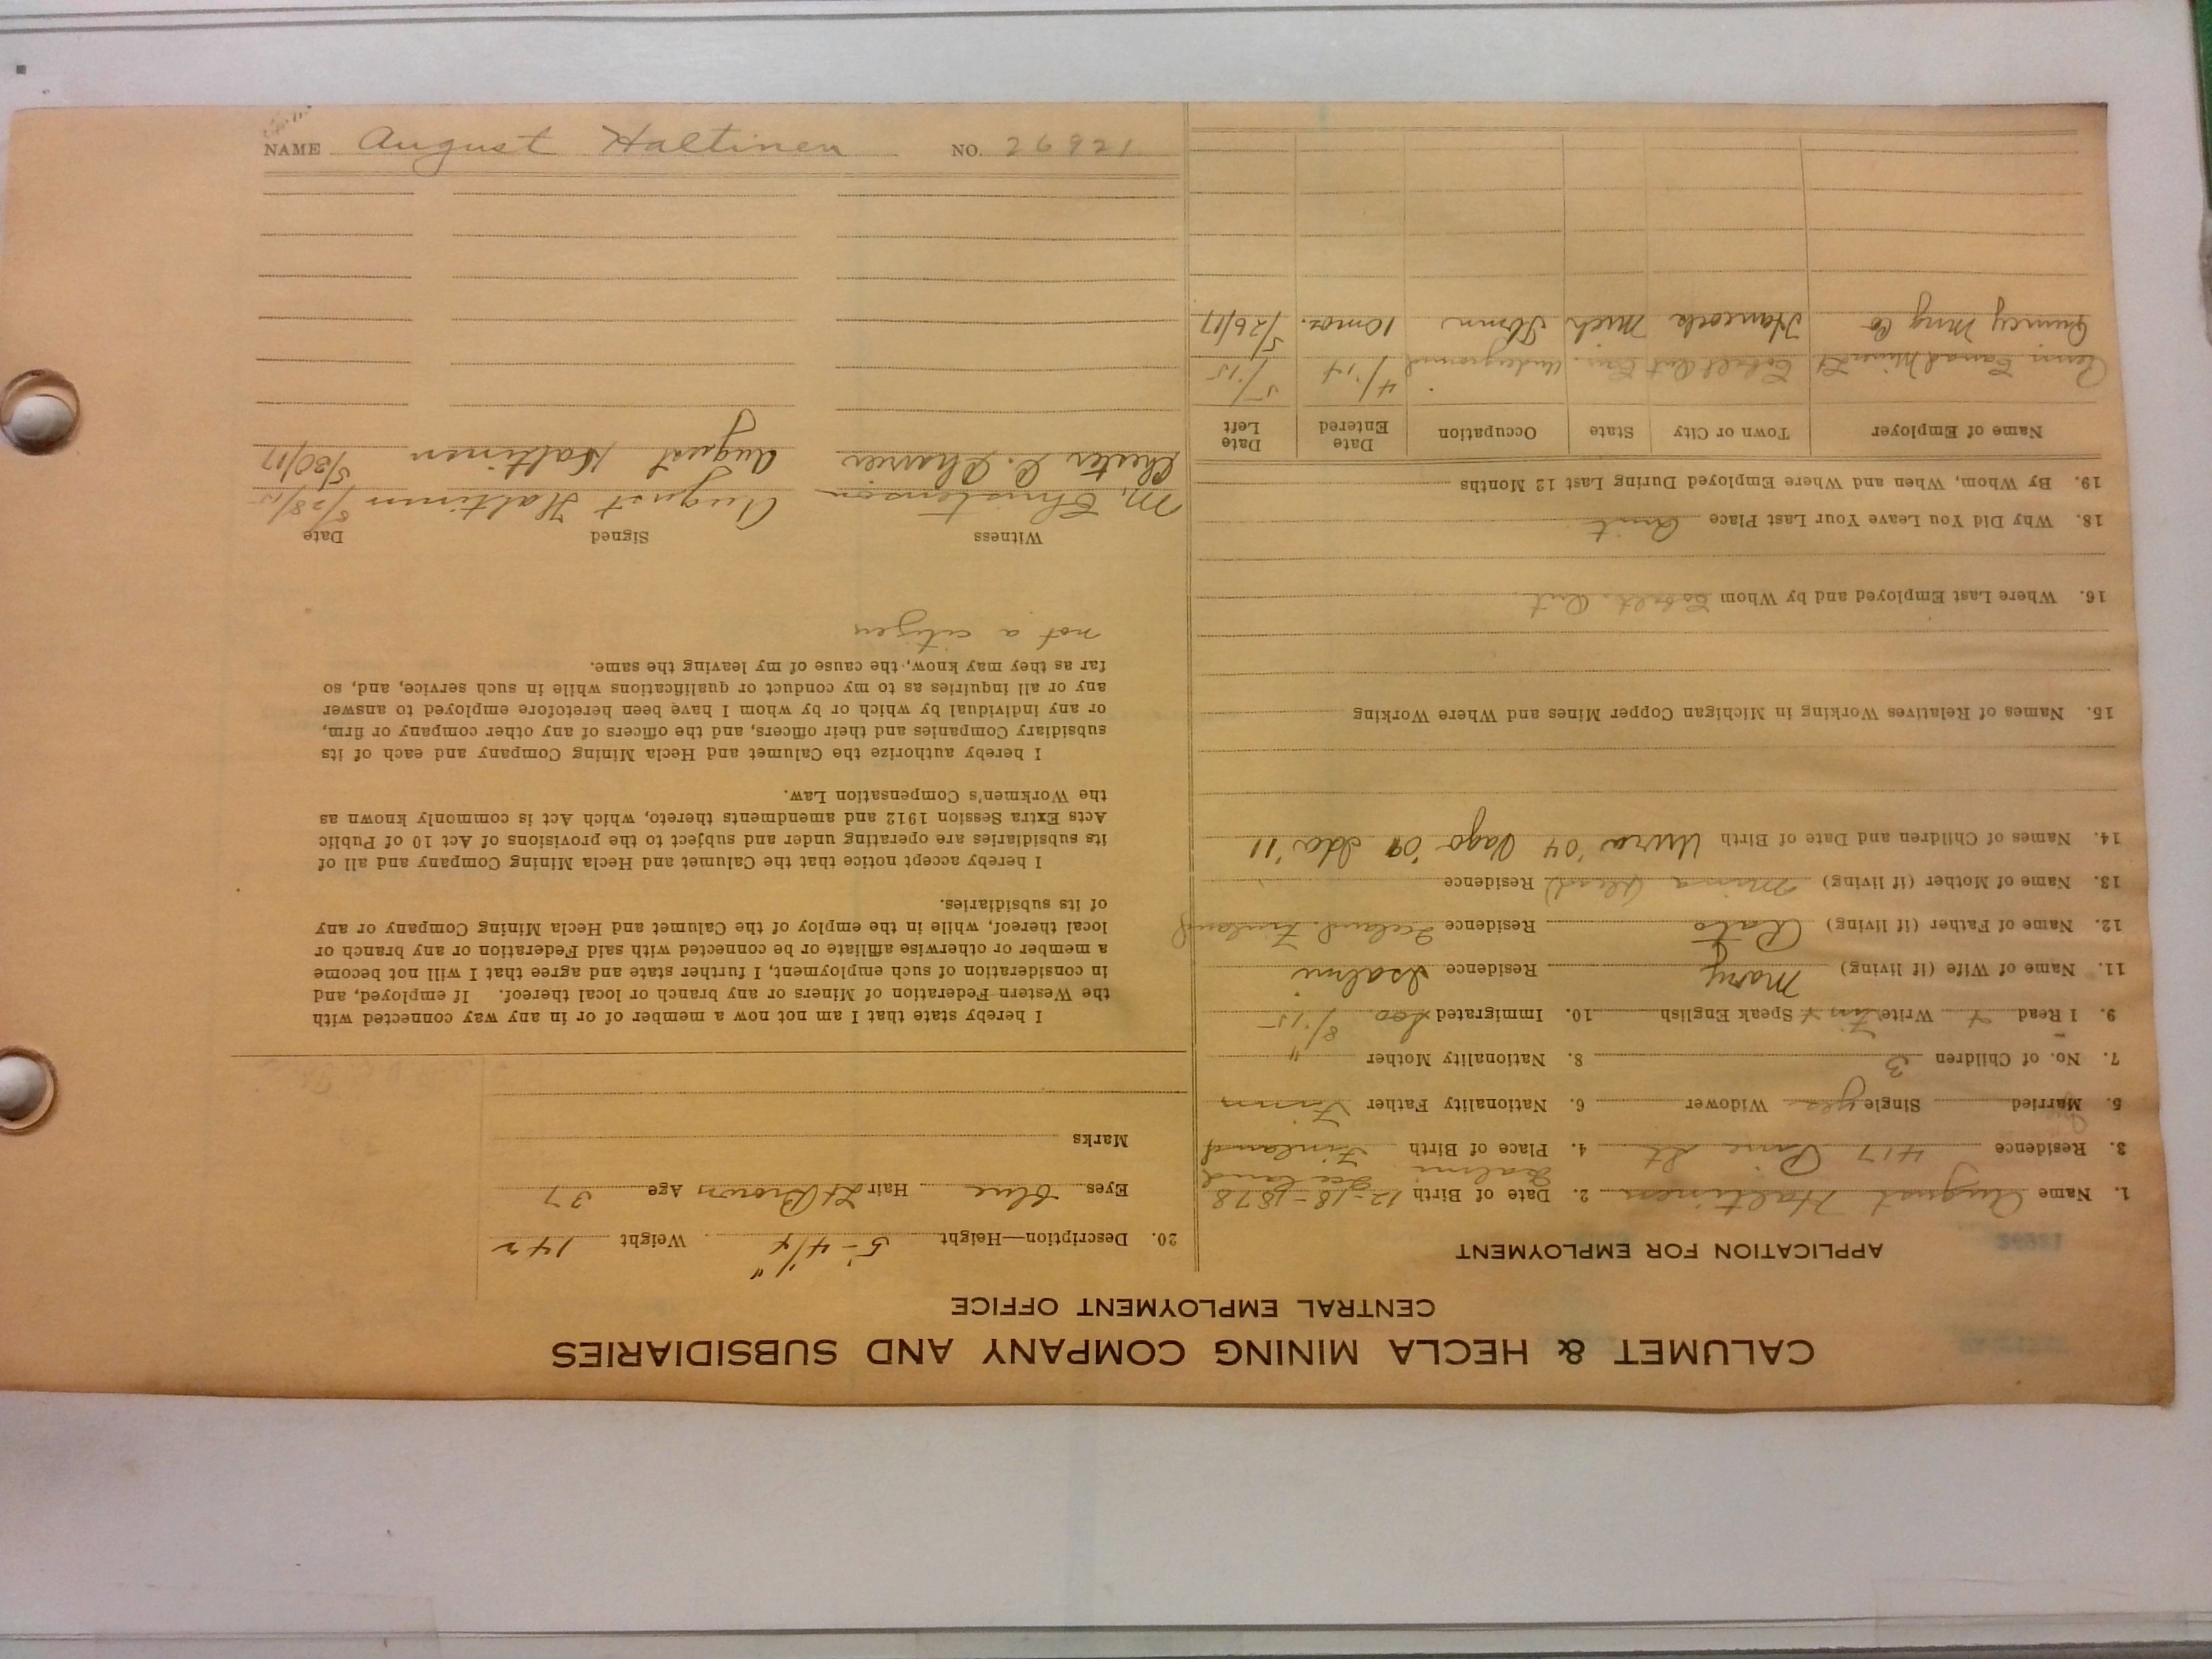 CALUMET & HECLA MINING COMPANY AND SUBSIDIARIES
CENTRAL EMPLOYMENT OFFICE
26921
APPLICATION FOR EMPLOYMENT
1. Name August Haltinen 2. Date of Birth 12-18-1878
3. Residence 417 Pine St 4. Place of Birth Finland
5. Married Single yes Widower 6. Nationality Father Finn
7. No. of Children 3 8. Nationality Mother "
9. I Read + Write Fin + Speak English 10. Immigrated Soo 8/'15
11. Name of Wife (if living) Mary Residence Isalmi
12. Name of Father (if living) Residence Finland
13. Name of Mother (if living) (dead) Residence
14. Names of Children and Date of Birth '04 '09 '11
15. Names of Relatives Working in Michigan Copper Mines and Where Working
16. Where Last Employed and by Whom Cobalt. Ont
18. Why Did You Leave Your Last Place Quit
19. By Whom, When and Where Employed During Last 12 Months
Name of Employer Town or City State Occupation Date Entered Date Left
Cobalt Ont Can. Underground 4/'14 5/'15
Quincy Mng Co Hancock Mich 10 mos. 5/26/17
20. Description—Height 5-4 1/4" Weight 142
Eyes Blue Hair Lt Brown Age 37
Marks
I hereby state that I am not now a member of or in any way connected with
the Western Federation of Miners or any branch or local thereof. If employed, and
in consideration of such employment, I further state and agree that I will not become
a member or otherwise affiliate or be connected with said Federation or any branch or
local thereof, while in the employ of the Calumet and Hecla Mining Company or any
of its subsidiaries.
I hereby accept notice that the Calumet and Hecla Mining Company and all of
its subsidiaries are operating under and subject to the provisions of Act 10 of Public
Acts Extra Session 1912 and amendments thereto, which Act is commonly known as
the Workmen's Compensation Law.
I hereby authorize the Calumet and Hecla Mining Company and each of its
subsidiary Companies and their officers, and the officers of any other company or firm,
or any individual by which or by whom I have been heretofore employed to answer
any or all inquiries as to my conduct or qualifications while in such service, and, so
far as they may know, the cause of my leaving the same.
not a citizen
Witness Signed Date
M. Christenson August Haltinen 8/28/15
Chester C. August Haltinen 5/30/17
NAME August Haltinen NO. 26921